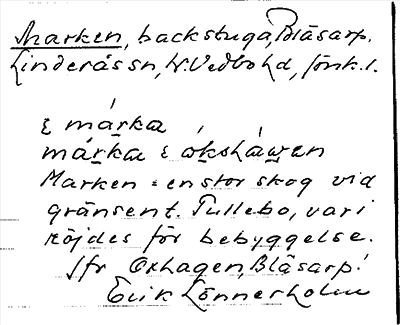 Marken, backstuga, Blåsarp.
Linderås sn, N. Vedbo hd, Jönk. l.
ę márka
márka ę ókshàwen
Marken = en stor skog vid
gränsen t. Tullebo, var i
röjdes för bebyggelse.
Jfr Oxhagen, Blåsarp!
Erik Lönnerholm